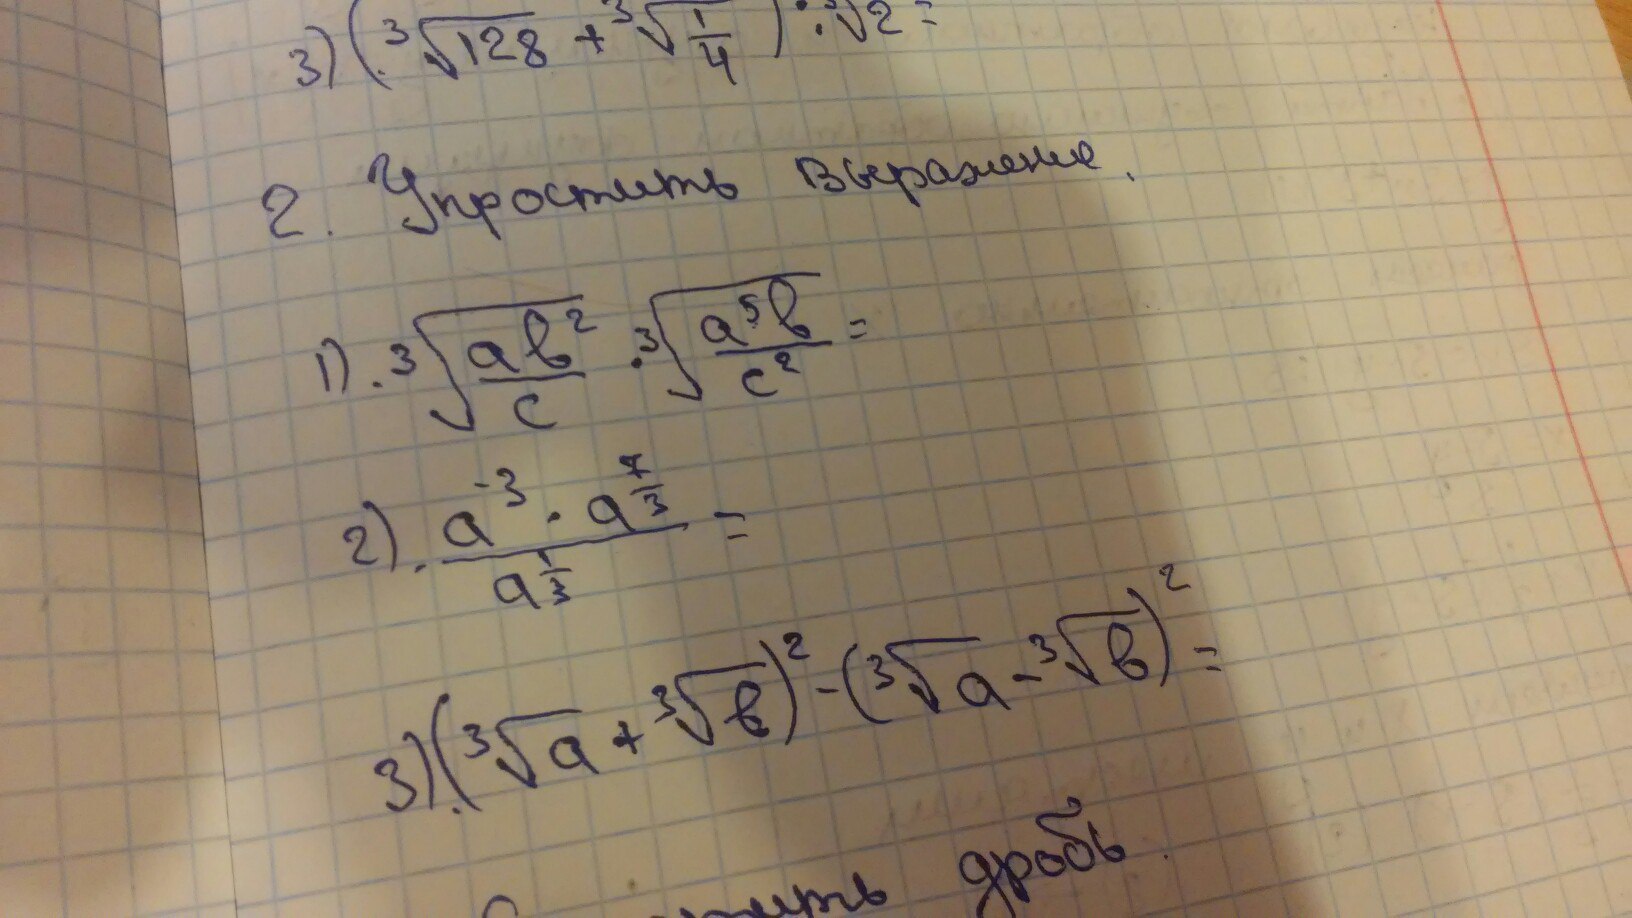 3) (∛128 + ∛(1/4)) : ∛2 =
2. Упростить выражение.
1) ∛(ab²/c) · ∛(a⁵b/c²) =
2) (a⁻³ · a^(7/3)) / a^(1/3) =
3) (∛a + ∛b)² - (∛a - ∛b)² =
дробь.